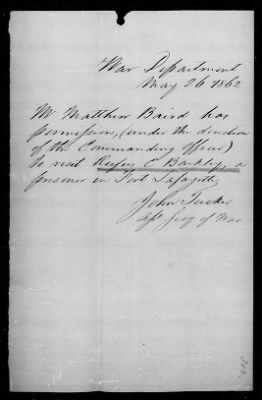 War Department
May 26 1862
Mr Matthew Baird has
permission, (under the direction
of the Commanding officer)
to visit Rufus C. Barkley, a
prisoner in Fort Lafayette
John Tucker
Asst Secy of War